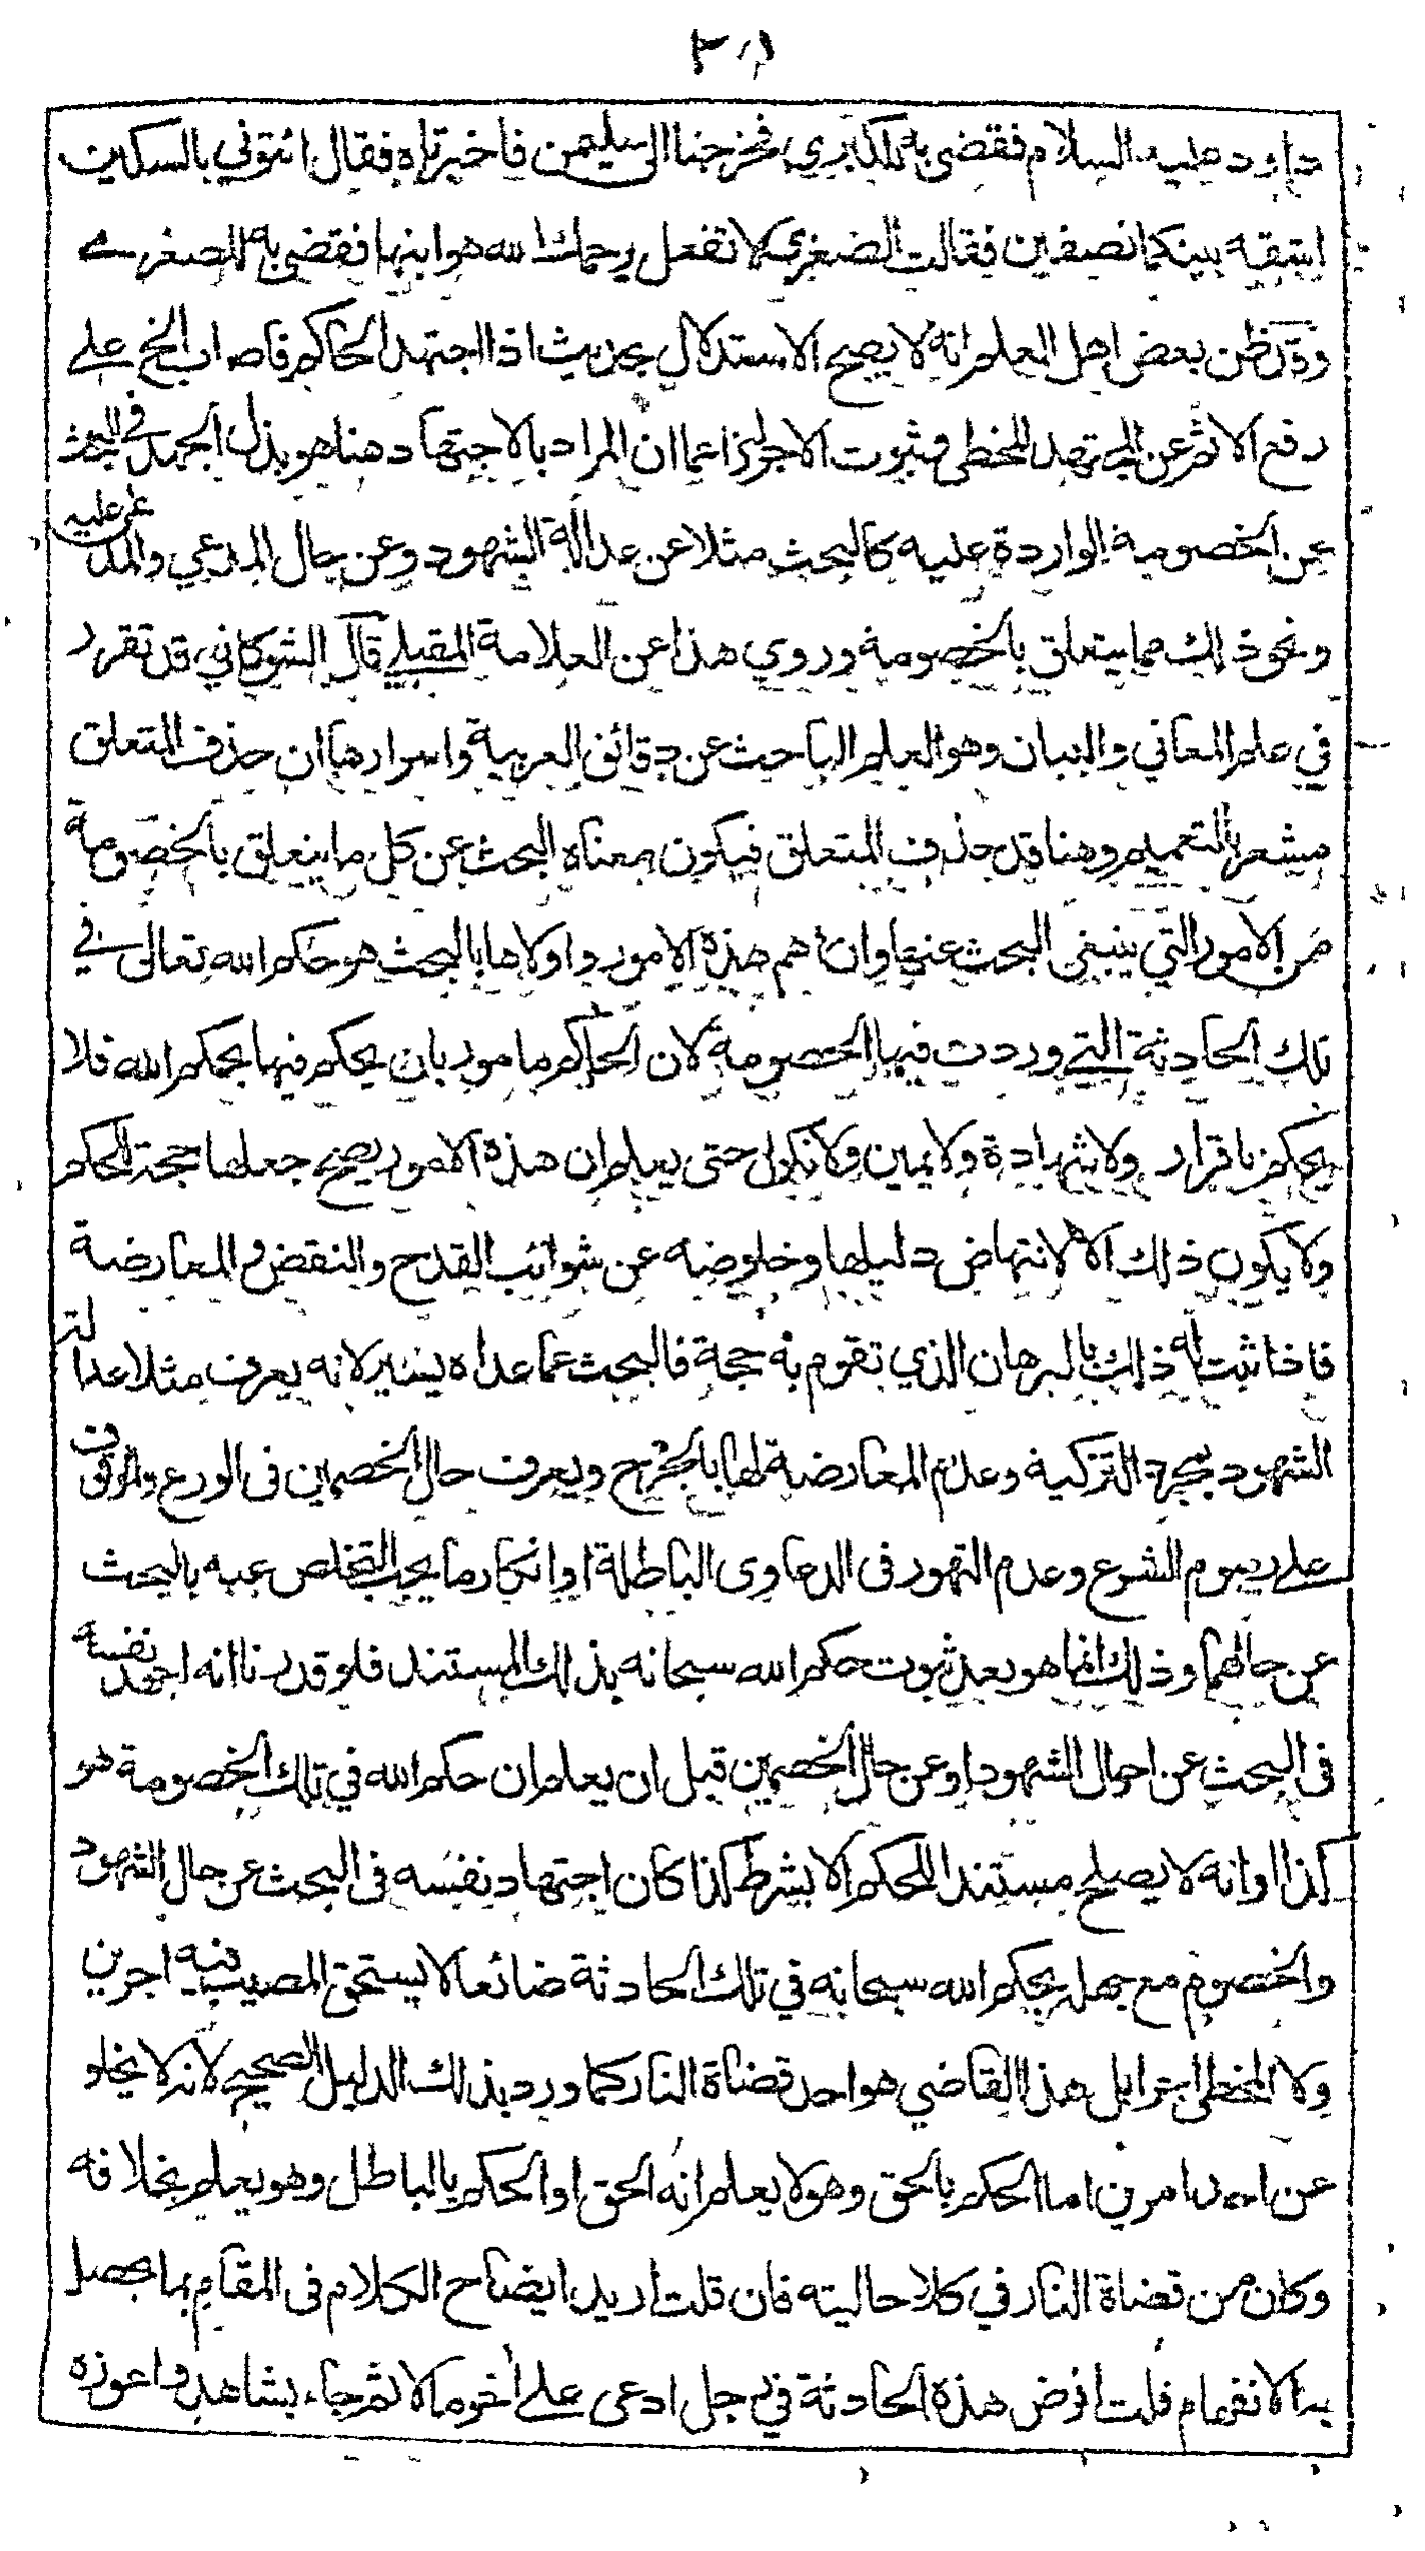 داود عليه السلام فقضى به للكبرى فخرجنا الى سليمن فاخبرتاه فقال ائتوني بالسكين
اشقه بينكما نصفين فقالت الصغرى لا تفعل رحمك الله هو ابنها فقضى به للصغرى
وقد ظن بعض اهل العلم انه لا يصح الاستدلال بحديث اذا اجتهد الحاكم فاصاب الخ على
رفع الاثم عن المجتهد المخطي وثبوت الاجر زاعما ان المراد بالاجتهاد هنا هو بذل الجهد في البحث
عن الخصومة الواردة عليه كالبحث مثلا عن عدالة الشهود وعن حال المدعي والمدعى عليه
ونحو ذلك مما يتعلق بالخصومة وروي هذا عن العلامة المقبلي قال الشوكاني قد تقرر
في علم المعاني والبيان وهو العلم الباحث عن دقائق العربية واسرارها ان حذف المتعلق
مشعر بالتعميم وهنا قد حذف المتعلق فيكون معناه البحث عن كل ما يتعلق بالخصومة
من الامور التي ينبغي البحث عنها وان اهم هذه الامور واولاها بالبحث هو حكم الله تعالى في
تلك الحادثة التي وردت فيها الخصومة لان الحاكم مامور بان يحكم فيها بحكم الله فلا
يحكم باقرار ولا شهادة ولا يمين ولا نكول حتى يعلم ان هذه الامور يصح جعلها حجة للحكم
ولا يكون ذلك الا لانتهاض دليلها وخلوصه عن شوائب القدح والنقض والمعارضة
فاذا ثبت له ذلك بالبرهان الذي تقوم به حجة فالبحث عما عداه يسير لانه يعرف مثلا عدالة
الشهود بمجرد التزكية وعدم المعارضة لها بالجرح ويعرف حال الخصمين في الورع والوقوف
على رسوم الشرع وعدم التهور في الدعاوى الباطلة او انكار ما يجب التخلص عنه بالبحث
عن حالهما وذلك انما هو بعد ثبوت حكم الله سبحانه بذلك المستند فلو قدرنا انه اجهد نفسه
في البحث عن احوال الشهود او عن حال الخصمين قبل ان يعلم ان حكم الله في تلك الخصومة هو
كذا او انه لا يصلح مستندا للحكم الا بشرط كذا كان اجتهاد نفسه في البحث عن حال الشهود
والخصوم مع جهله بحكم الله سبحانه في تلك الحادثة ضائعا لا يستحق المصيب فيه اجرين
ولا المخطي اجرا بل هذا القاضي هو احد قضاة النار كما ورد بذلك الدليل الصحيح لانه لا يخلو
عن احد امرين اما الحكم بالحق وهو لا يعلم انه الحق او الحكم بالباطل وهو يعلم بخلافه
وكان من قضاة النار في كلا حاليته فان قلت اريد ايضاح الكلام في المقام بما يحصل
به الانفهام قلت افرض هذه الحادثة في رجل ادعى على اخر مالا ثم جاء بشاهد واعوزه